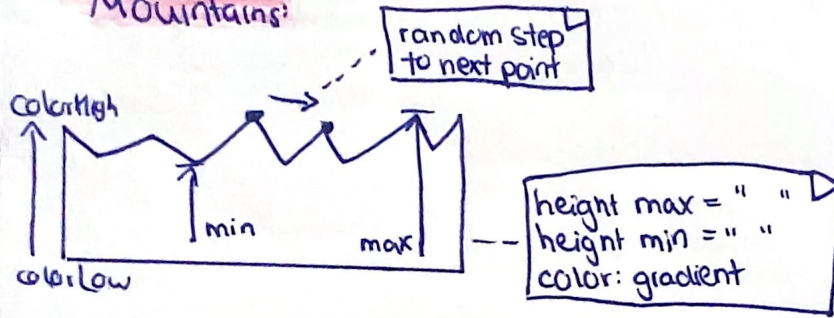 Mountains:
random step
to next point
colorHigh
min
max
height max = " "
height min = " "
color: gradient
colorLow